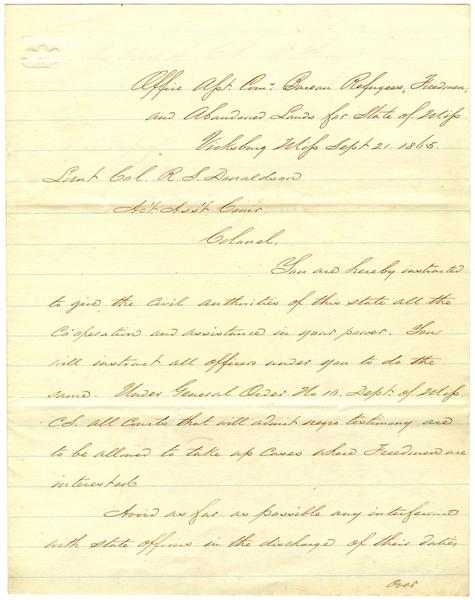 Office Asst. Com. Bureau Refugees, Freedmen,
and Abandoned Lands for State of Miss
Vicksburg Miss Sept 21. 1865.
Lieut Col. R. S. Donaldson
Act Asst Comr.
Colonel.
You are hereby instructed
to give the civil authorities of this state all the
Coöperation and assistance in your power. You
will instruct all officers under you to do the
same. Under General Order No 10. Dept. of Miss.
C.S. all Courts that will admit negro testimony are
to be allowed to take up cases where Freedmen are
interested.
Avoid as far as possible any interference
with state officers in the discharge of their duties
over